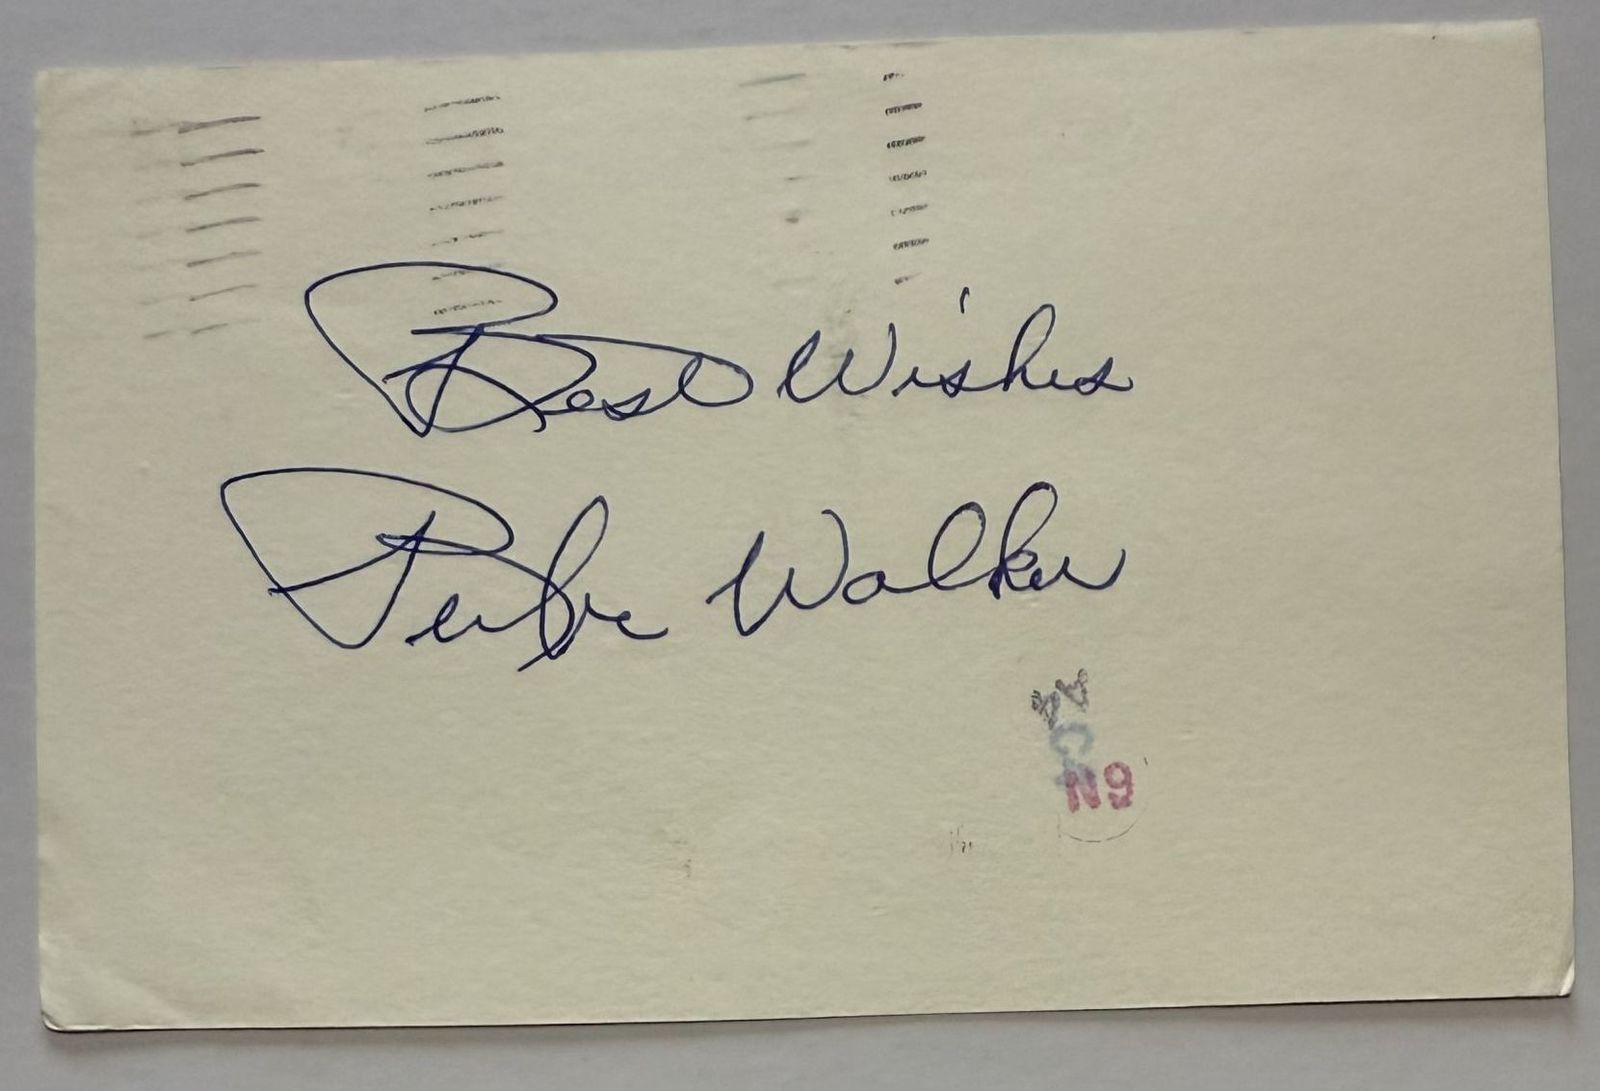 Best Wishes
Rube Walker
N9